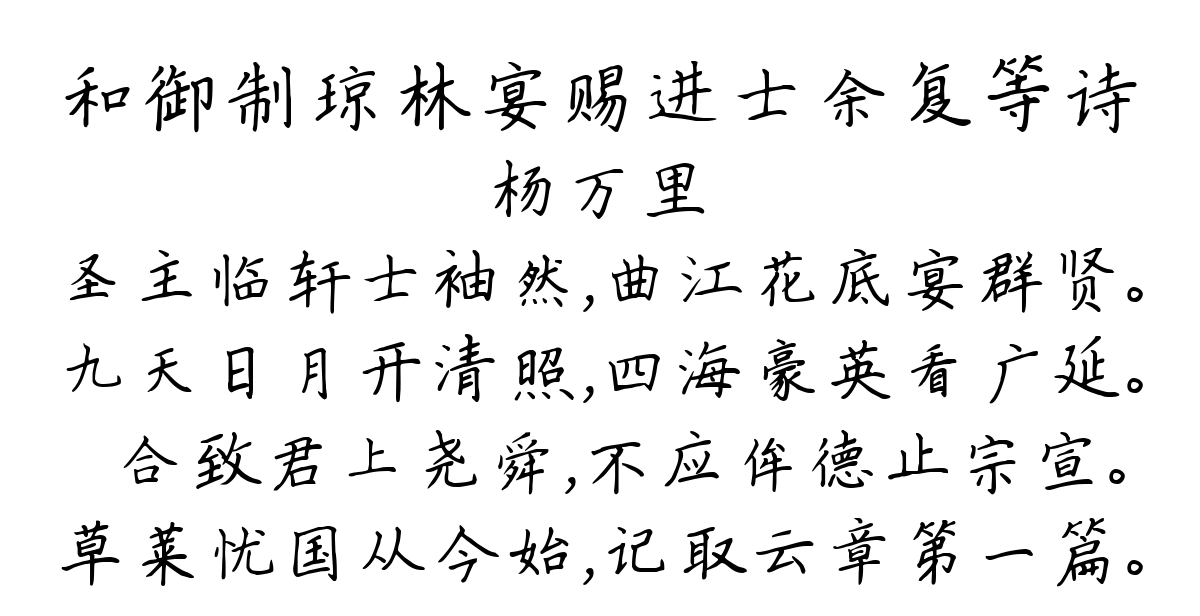 和御制琼林宴赐进士余复等诗
杨万里
圣主临轩士袖然,曲江花底宴群贤。
九天日月开清照,四海豪英看广延。
合致君上尧舜,不应侔德止宗宣。
草莱忧国从今始,记取云章第一篇。